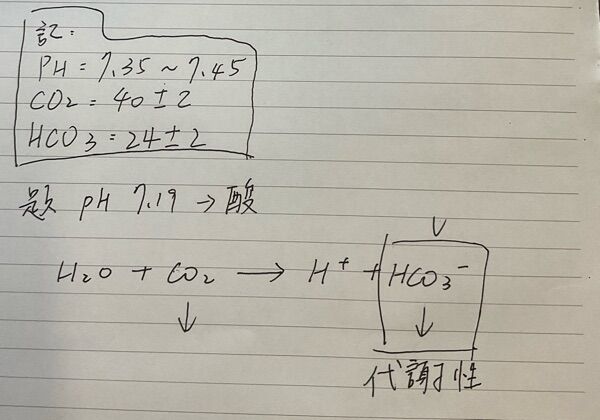 記:
PH = 7.35 ~ 7.45
CO2 = 40 ± 2
HCO3 = 24 ± 2
題 pH 7.19 → 酸
H2O + CO2 → H+ + HCO3-
↓ ↓
代謝性